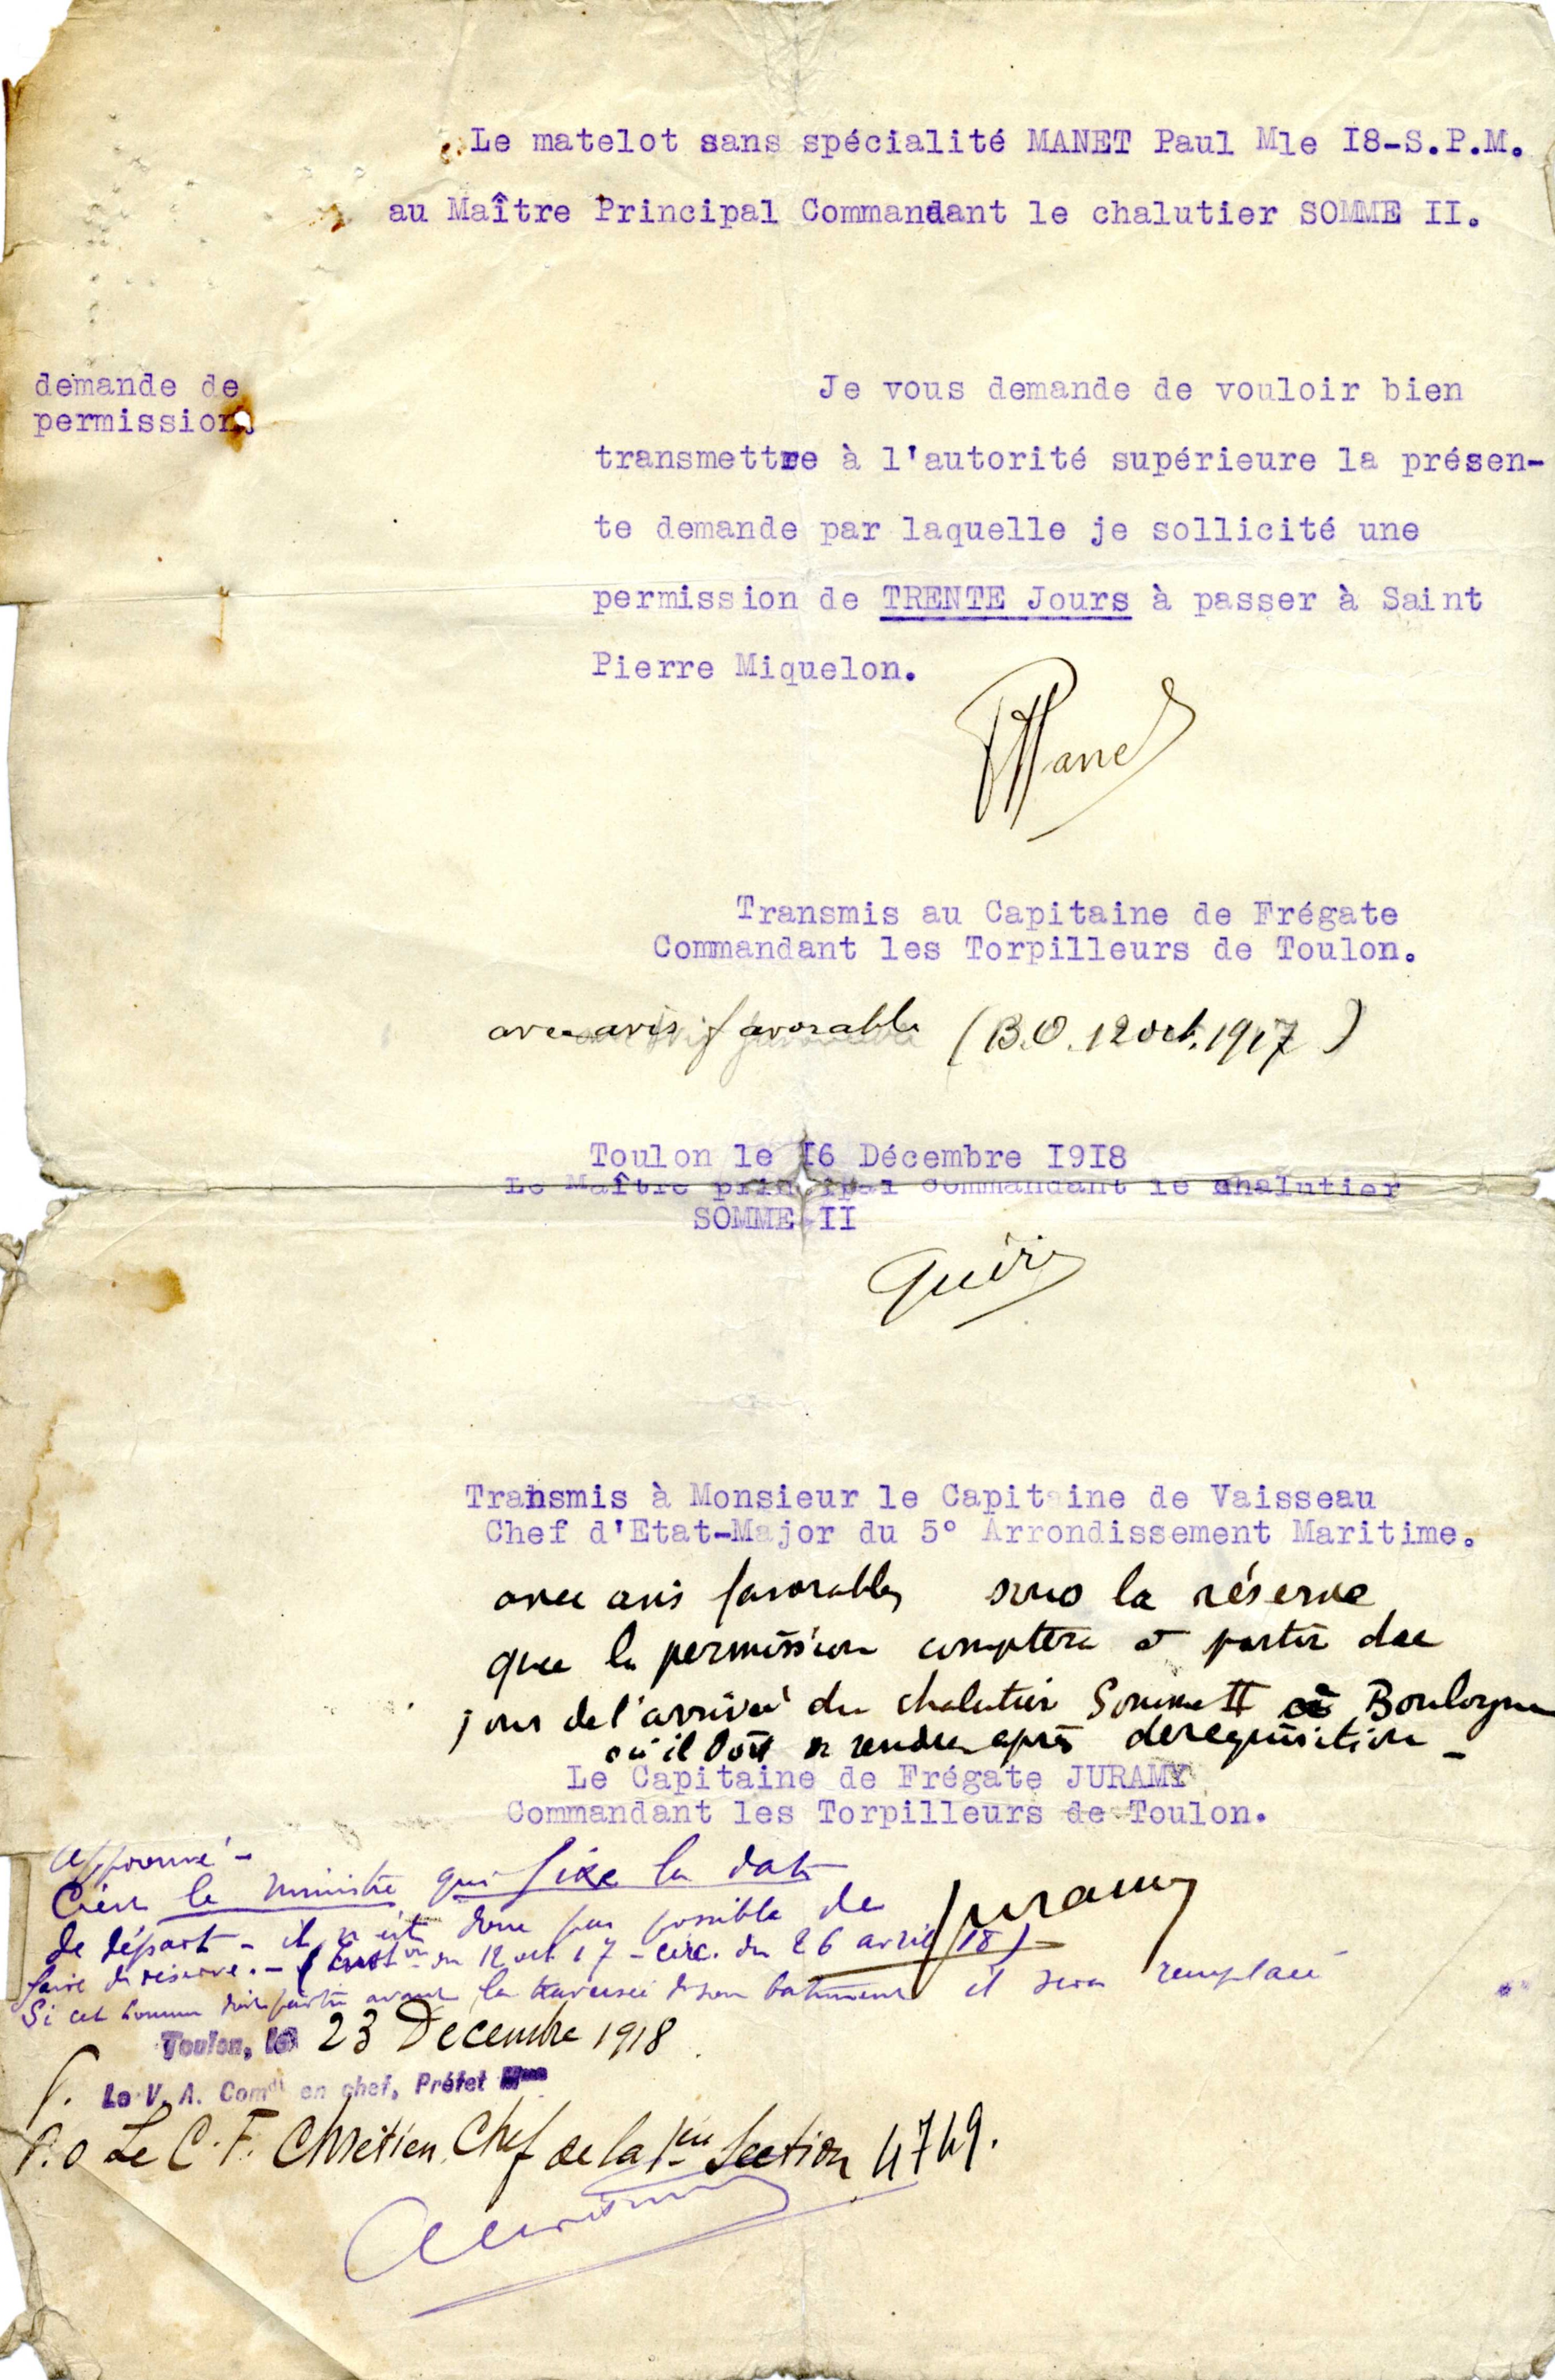 Le matelot sans spécialité MANET Paul Mle I8-S.P.M.
au Maître Principal Commandant le chalutier SOMME II.
demande de
permission.
Je vous demande de vouloir bien
transmettre à l'autorité supérieure la présen-
te demande par laquelle je sollicité une
permission de TRENTE Jours à passer à Saint
Pierre Miquelon.
PManet
Transmis au Capitaine de Frégate
Commandant les Torpilleurs de Toulon.
avec avis favorable (B.O. 12 oct. 1917)
Toulon le I6 Décembre I9I8
Le Maître principal Commandant le chalutier
SOMME II
Transmis à Monsieur le Capitaine de Vaisseau
Chef d'Etat-Major du 5° Arrondissement Maritime.
avec avis favorable, sous la réserve
que la permission comptera à partir du
jour de l'arrivée du chalutier Somme II à Boulogne
où il doit se rendre après derequisition -
Le Capitaine de Frégate JURAMY
Commandant les Torpilleurs de Toulon.
Juramy
approuvé -
C'est le ministre qui fixe la date
de départ - il n'est donc pas possible de
faire de réserve. - ( du 12 oct 17 - circ. du 26 avril 18)
Si cet homme doit partir avant la traversée de son batiment il sera remplacé
Toulon, le 23 Decembre 1918.
P. Le V. A. Comdt en chef, Préfet Mme
P.O Le C. F. Chrétien, Chef de la 1ère Section 4749.